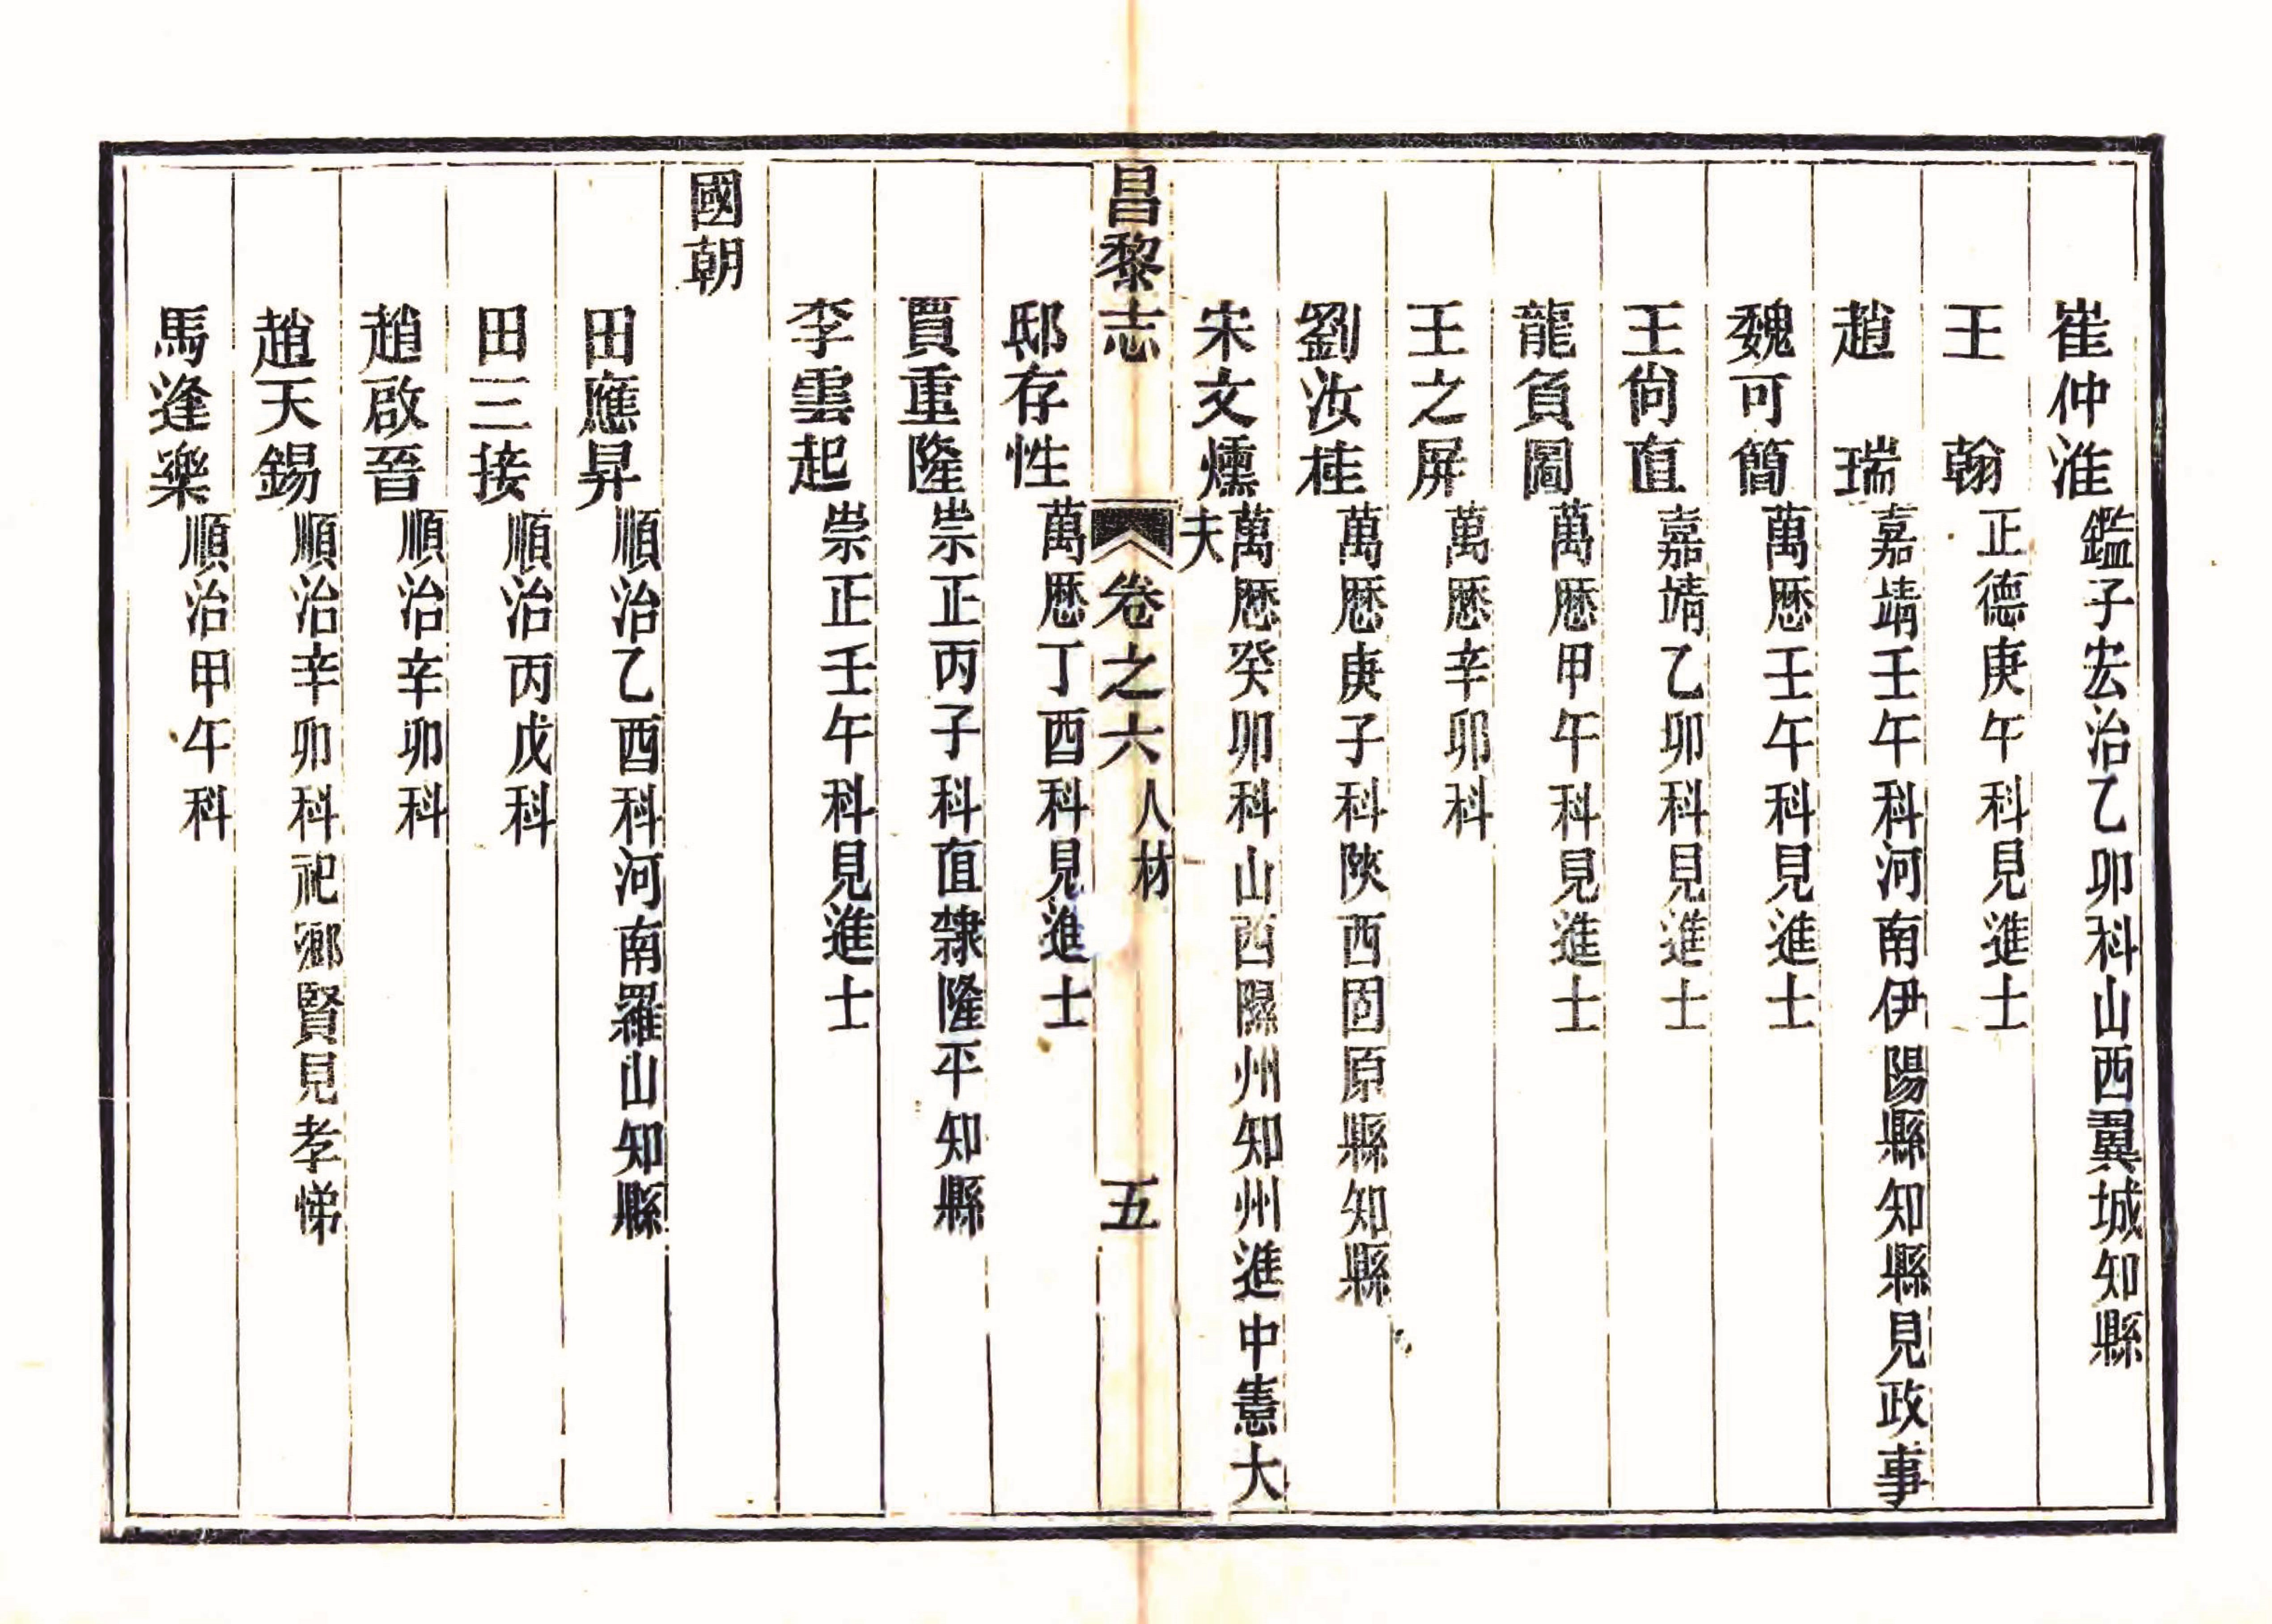 崔仲淮 鑑子宏治乙卯科山西翼城知縣
王翰 正德庚午科見進士
趙瑞 嘉靖壬午科河南伊陽縣知縣見政事
魏可簡 萬厯壬午科見進士
王尙直 嘉靖乙卯科見進士
龍負圖 萬厯甲午科見進士
王之屏 萬厯辛卯科
劉汝桂 萬厯庚子科陝西固原縣知縣
宋文燻 萬厯癸卯科山西隰州知州進中憲大
夫
昌黎志 卷之六 人材 五
邸存性 萬厯丁酉科見進士
賈重隆 崇正丙子科直隸隆平知縣
李雲起 崇正壬午科見進士
國朝
田應昇 順治乙酉科河南羅山知縣
田三接 順治丙戌科
趙啟晉 順治辛卯科
趙天錫 順治辛卯科祀鄉賢見孝悌
馬逢樂 順治甲午科